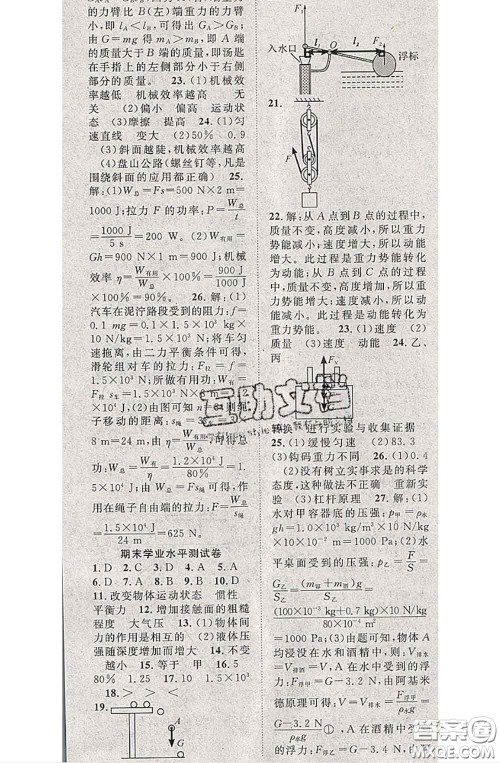 力臂比B(左)端重力的力臂
小,即l_A<l_B可得出G_A>G_B。
由G=mg得m_A>m_B,即A端
的质量大于B端的质量,即汤匙
在手指上的左侧部分小于右侧
部分的质量。 23.(1)机械效
率越低 机械效率越高 无
关 (2)偏小 偏高 运动状
态 (3)摩擦 提高 24.(1)匀
速直线 变大 (2)50% 0.9
(3)斜面越陡,机械效率越高
(4)盘山公路(螺丝钉等,凡是
围绕斜面的应用都正确) 25.
解:(1)W总=Fs=500 N×2 m=
1000 J;拉力F的功率:P=W总/t
=1000 J/5 s=200 W。(2)W有用=
Gh=900 N×1 m=900 J;机械
效率η=W有用/W总×100%=900 J/1000 J
×100%=90%。 26.解:(1)
汽车在泥泞路段受到的阻力:f=
0.1mg=0.1×1.5×10³ kg×10
N/kg=1.5×10³ N;将车匀
速拖离,由二力平衡条件可得,
滑轮组对车的拉力:F轻=f=
1.5×10³ N。(2)W有用=
F轻s车=1.2×10⁴ J
绳
子移动的距离:s绳=
8 m=24 m,由 得总
功:W总=W有用/η=1.2×10⁴ J/80%=
1.5×10⁴ J。由W总=Fs绳可得,
作用在绳子自由端的拉力:F=
W总/s绳=1.5×10⁴ J/24 m=625 N。
期末学业水平测试卷
1.D 2.D 3.C 4.D 5.D
6.D 7.D 8.B 9.D 10.D
11.改变物体运动状态 惯性
平衡力 12.增加接触面的粗糙
程度 大气压 13.(1)物体间
力的作用是相互的 (2)液体压
强随深度增加而增大 14.不变
越小 15.等于 甲 16.5
80% 1.25 17.2 30
18.> >
19.
A
G
G
F₁
入水口
l₁
O
l₂
F₂
浮标
21.
F
22.解:从A点到B点的过程中,
质量不变,高度减小,所以重力
势能减小;速度增大,所以动能
增大。此过程是重力势能转化
为动能;从B点到C点的过程中,
质量不变,高度增大,所以重力
势能增大;速度减小,所以动能
减小。此过程是动能转化为
重力势能。 23.(1)速度 (2)
质量 (3)速度 动能 24.乙、
丙
转换 进行实验与收集证据
25.(1)缓慢匀速 (2)83.3
(3)钩码重力不同 26.(1)
(2)没有树立实事求是的科学
态度,这种做法不正确 重新实
验 (3)杠杆原理 27.解:(1)
水对甲容器底的压强:p甲=ρ水
gh=1.0×10³ kg/m³×10 N/kg
×0.1 m=1000 Pa;(2)乙对水
平桌面所受的压强:p乙=F乙/S乙=
G乙/S乙=(m容+m酒精)g/S乙=
(100×10⁻³ kg+0.7 kg)×10 N/kg/80×10⁻⁴ m²=
1000 Pa;(3)由题可知,物体A均
浸没在水和酒精中,则:V排水=
V排酒精,A在水中受到的浮
力:F浮甲=G-3.2 N,由阿基米
德原理可得:V排水=F浮甲/ρ水g=
G-3.2 N/ρ水g①,A在酒精中受到
的浮力:F浮乙=G-3.4 N,由阿
互助文档
答案圈
MXEQ.COM